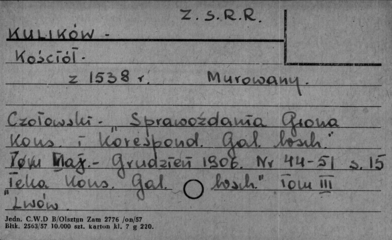 Z.S.R.R.
KULIKÓW.
Kościół.
z 1538 r. Murowany.
Czołowski - Sprawozdania Grona
Kons. i Korespond. Gal. wsch."
Maj. - Grudzień 1906. Nr 44-51 s. 15
Teka Kons. Gal. wsch." Tom III
"Lwów
Jedn. C.W.D B/Olsztyn Zam 2776 /on/57
Błhk. 2563/57 10.000 szt. karton kl. 7 g 210.